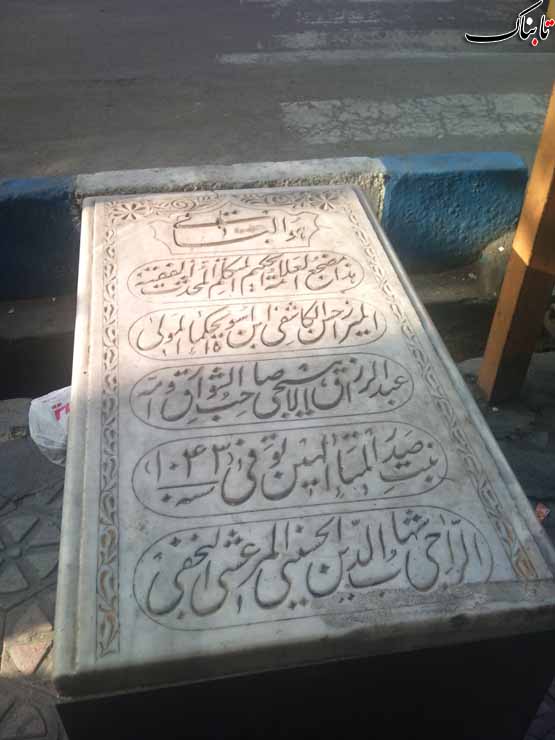 تابناک
هو الباقی
هذا مضجع العلامة الحکیم المتکلم المحدث الفقیه
المیرزا حسن الکاشفی ابن اسوة الحکماء المولی
عبدالرزاق اللاهیجی صاحب الشوارق و امه
بنت صدر المتألهین توفی سنه (۱۰۴۳)
الراجی شهاب الدین الحسینی المرعشی النجفی